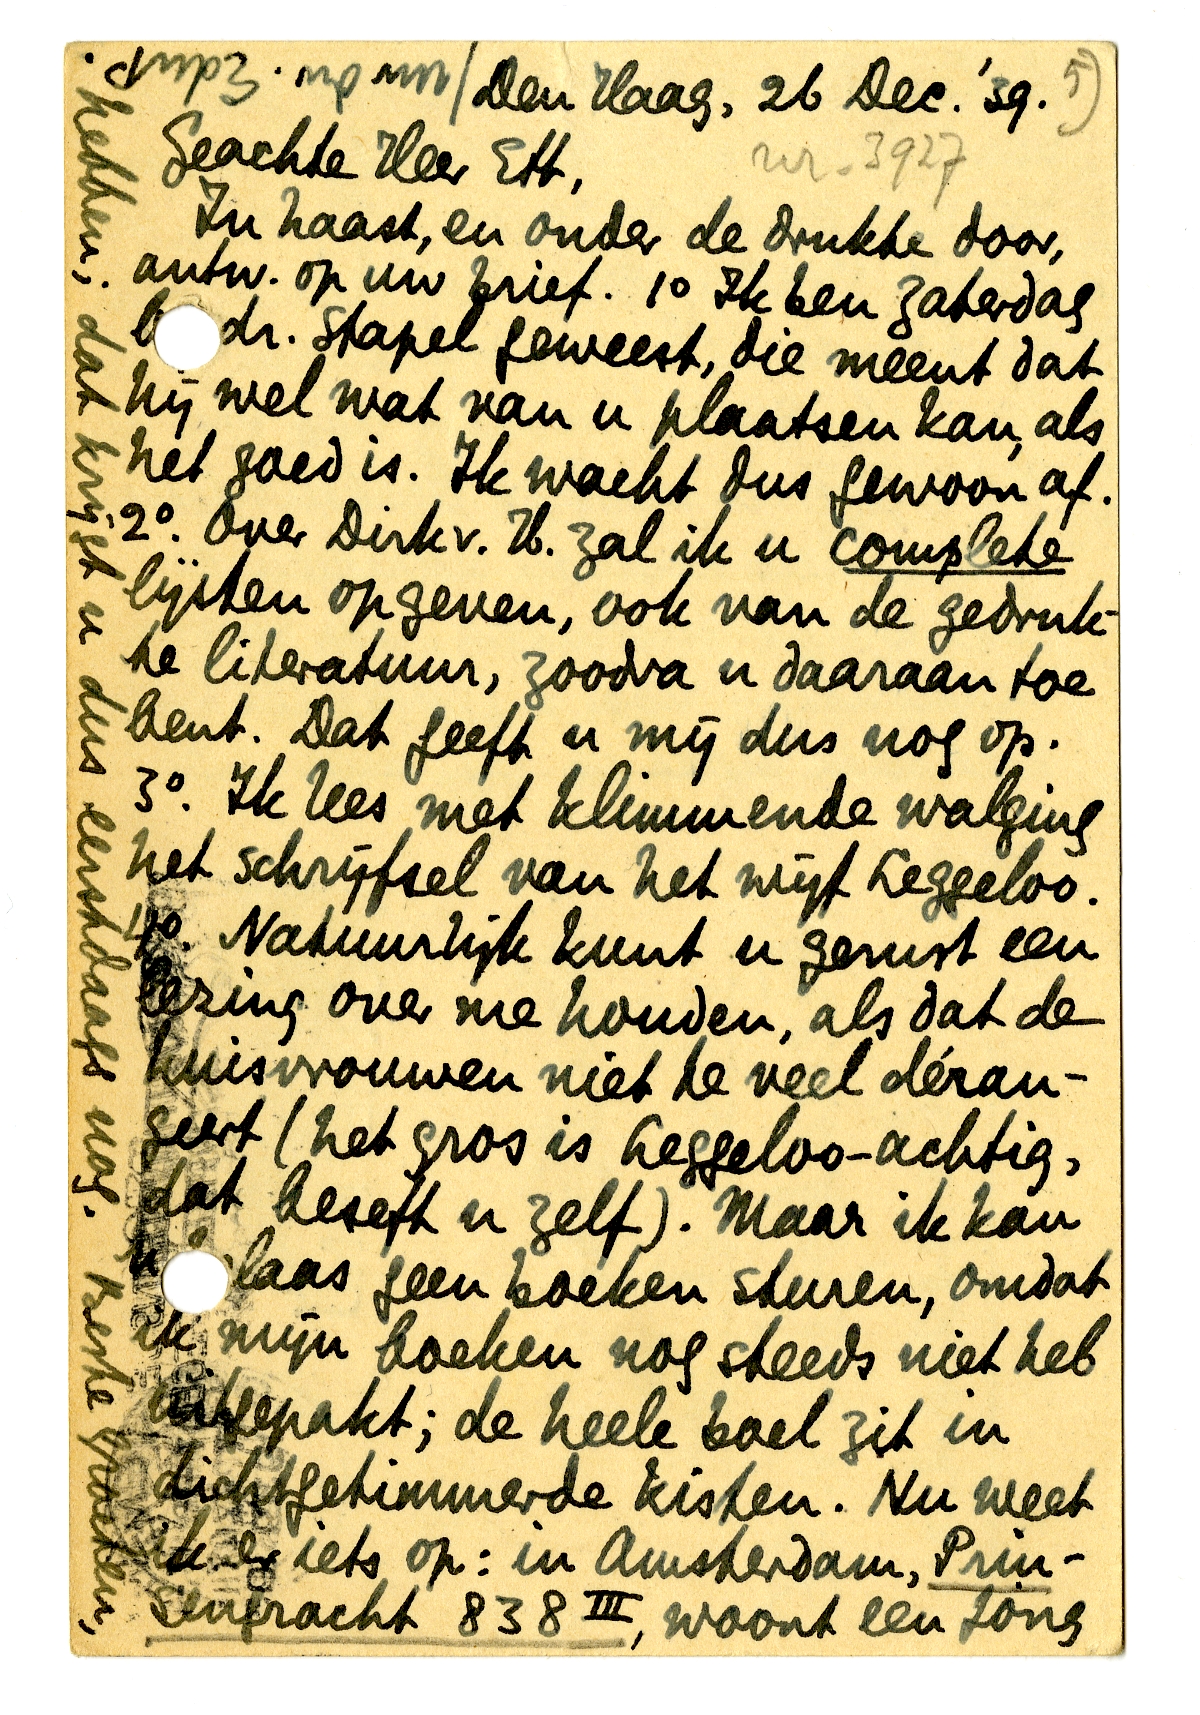 Den Haag, 26 Dec. '39.
5)
nr. 3927
Geachte Heer Ett,
In haast, en onder de drukte door,
antw. op uw brief. 1º Ik ben Zaterdag
b dr. Stapel geweest, die meent dat
hij wel wat van u plaatsen kan, als
het goed is. Ik wacht dus gewoon af.
2º. Over Dirk v. H. zal ik u complete
lijsten opgeven, ook van de gedruk-
te literatuur, zoodra u daaraan toe
bent. Dat geeft u mij dus nog op.
3º. Ik lees met klimmende walging
het schrijfsel van het wijf Leggeloo.
4º. Natuurlijk kunt u gerust een
lezing over me houden, als dat de
huisvrouwen niet te veel déran-
geert (het gros is Leggeloo-achtig,
dat beseft u zelf). Maar ik kan
u laas geen boeken sturen, omdat
ik mijn boeken nog steeds niet heb
uitgepakt; de heele boel zit in
dichtgetimmerde kisten. Nu weet
ik er iets op: in Amsterdam, Prin-
sengracht 838 III, woont een jong
hebben; dat krijgt u dus eerstdaags nog. Beste groeten,
uw dw. EduP.